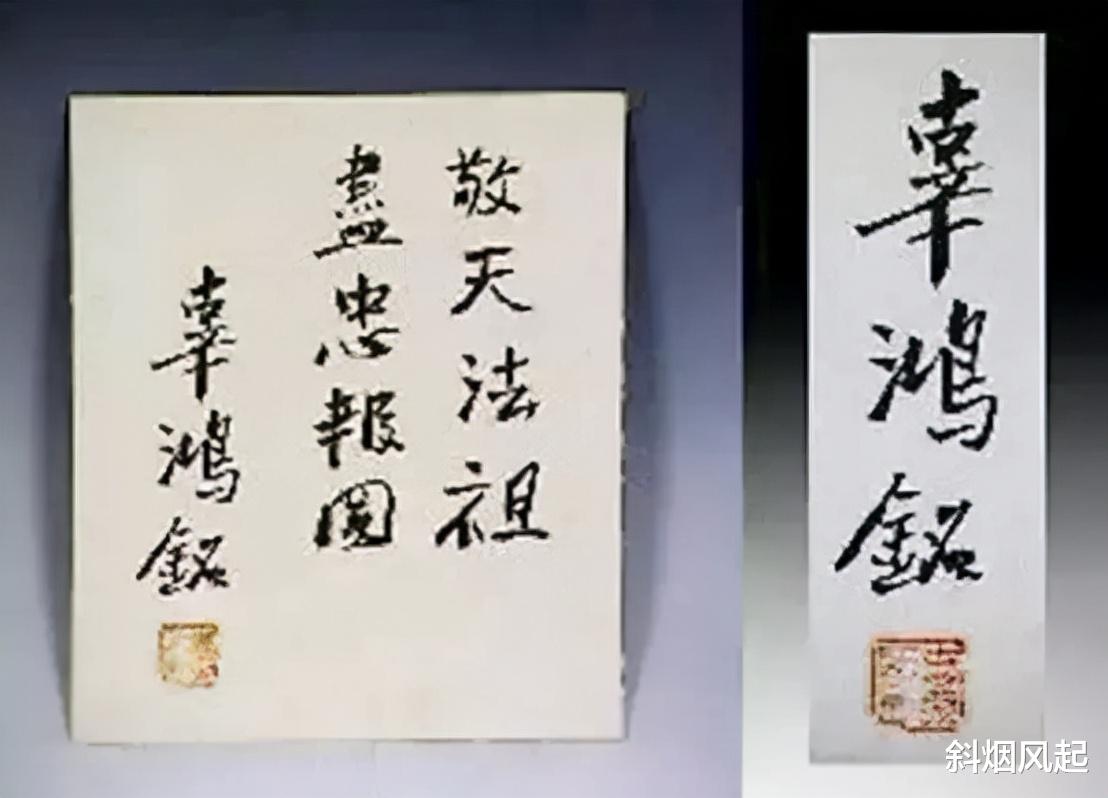 敬天法祖
盡忠報國
辜鴻銘
辜鴻銘
斜烟风起